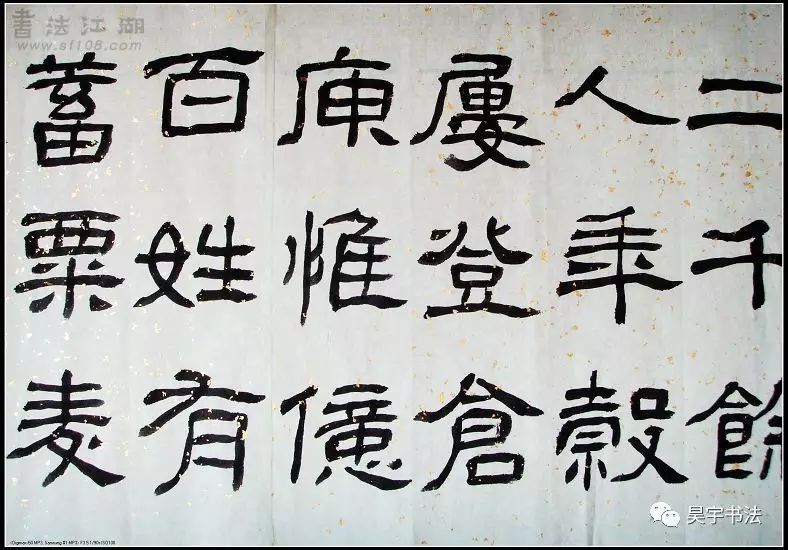 書法江湖
www.sf108.com
二千餘
人年穀
屢登倉
庾惟億
百姓有
蓄粟麦
昊宇书法